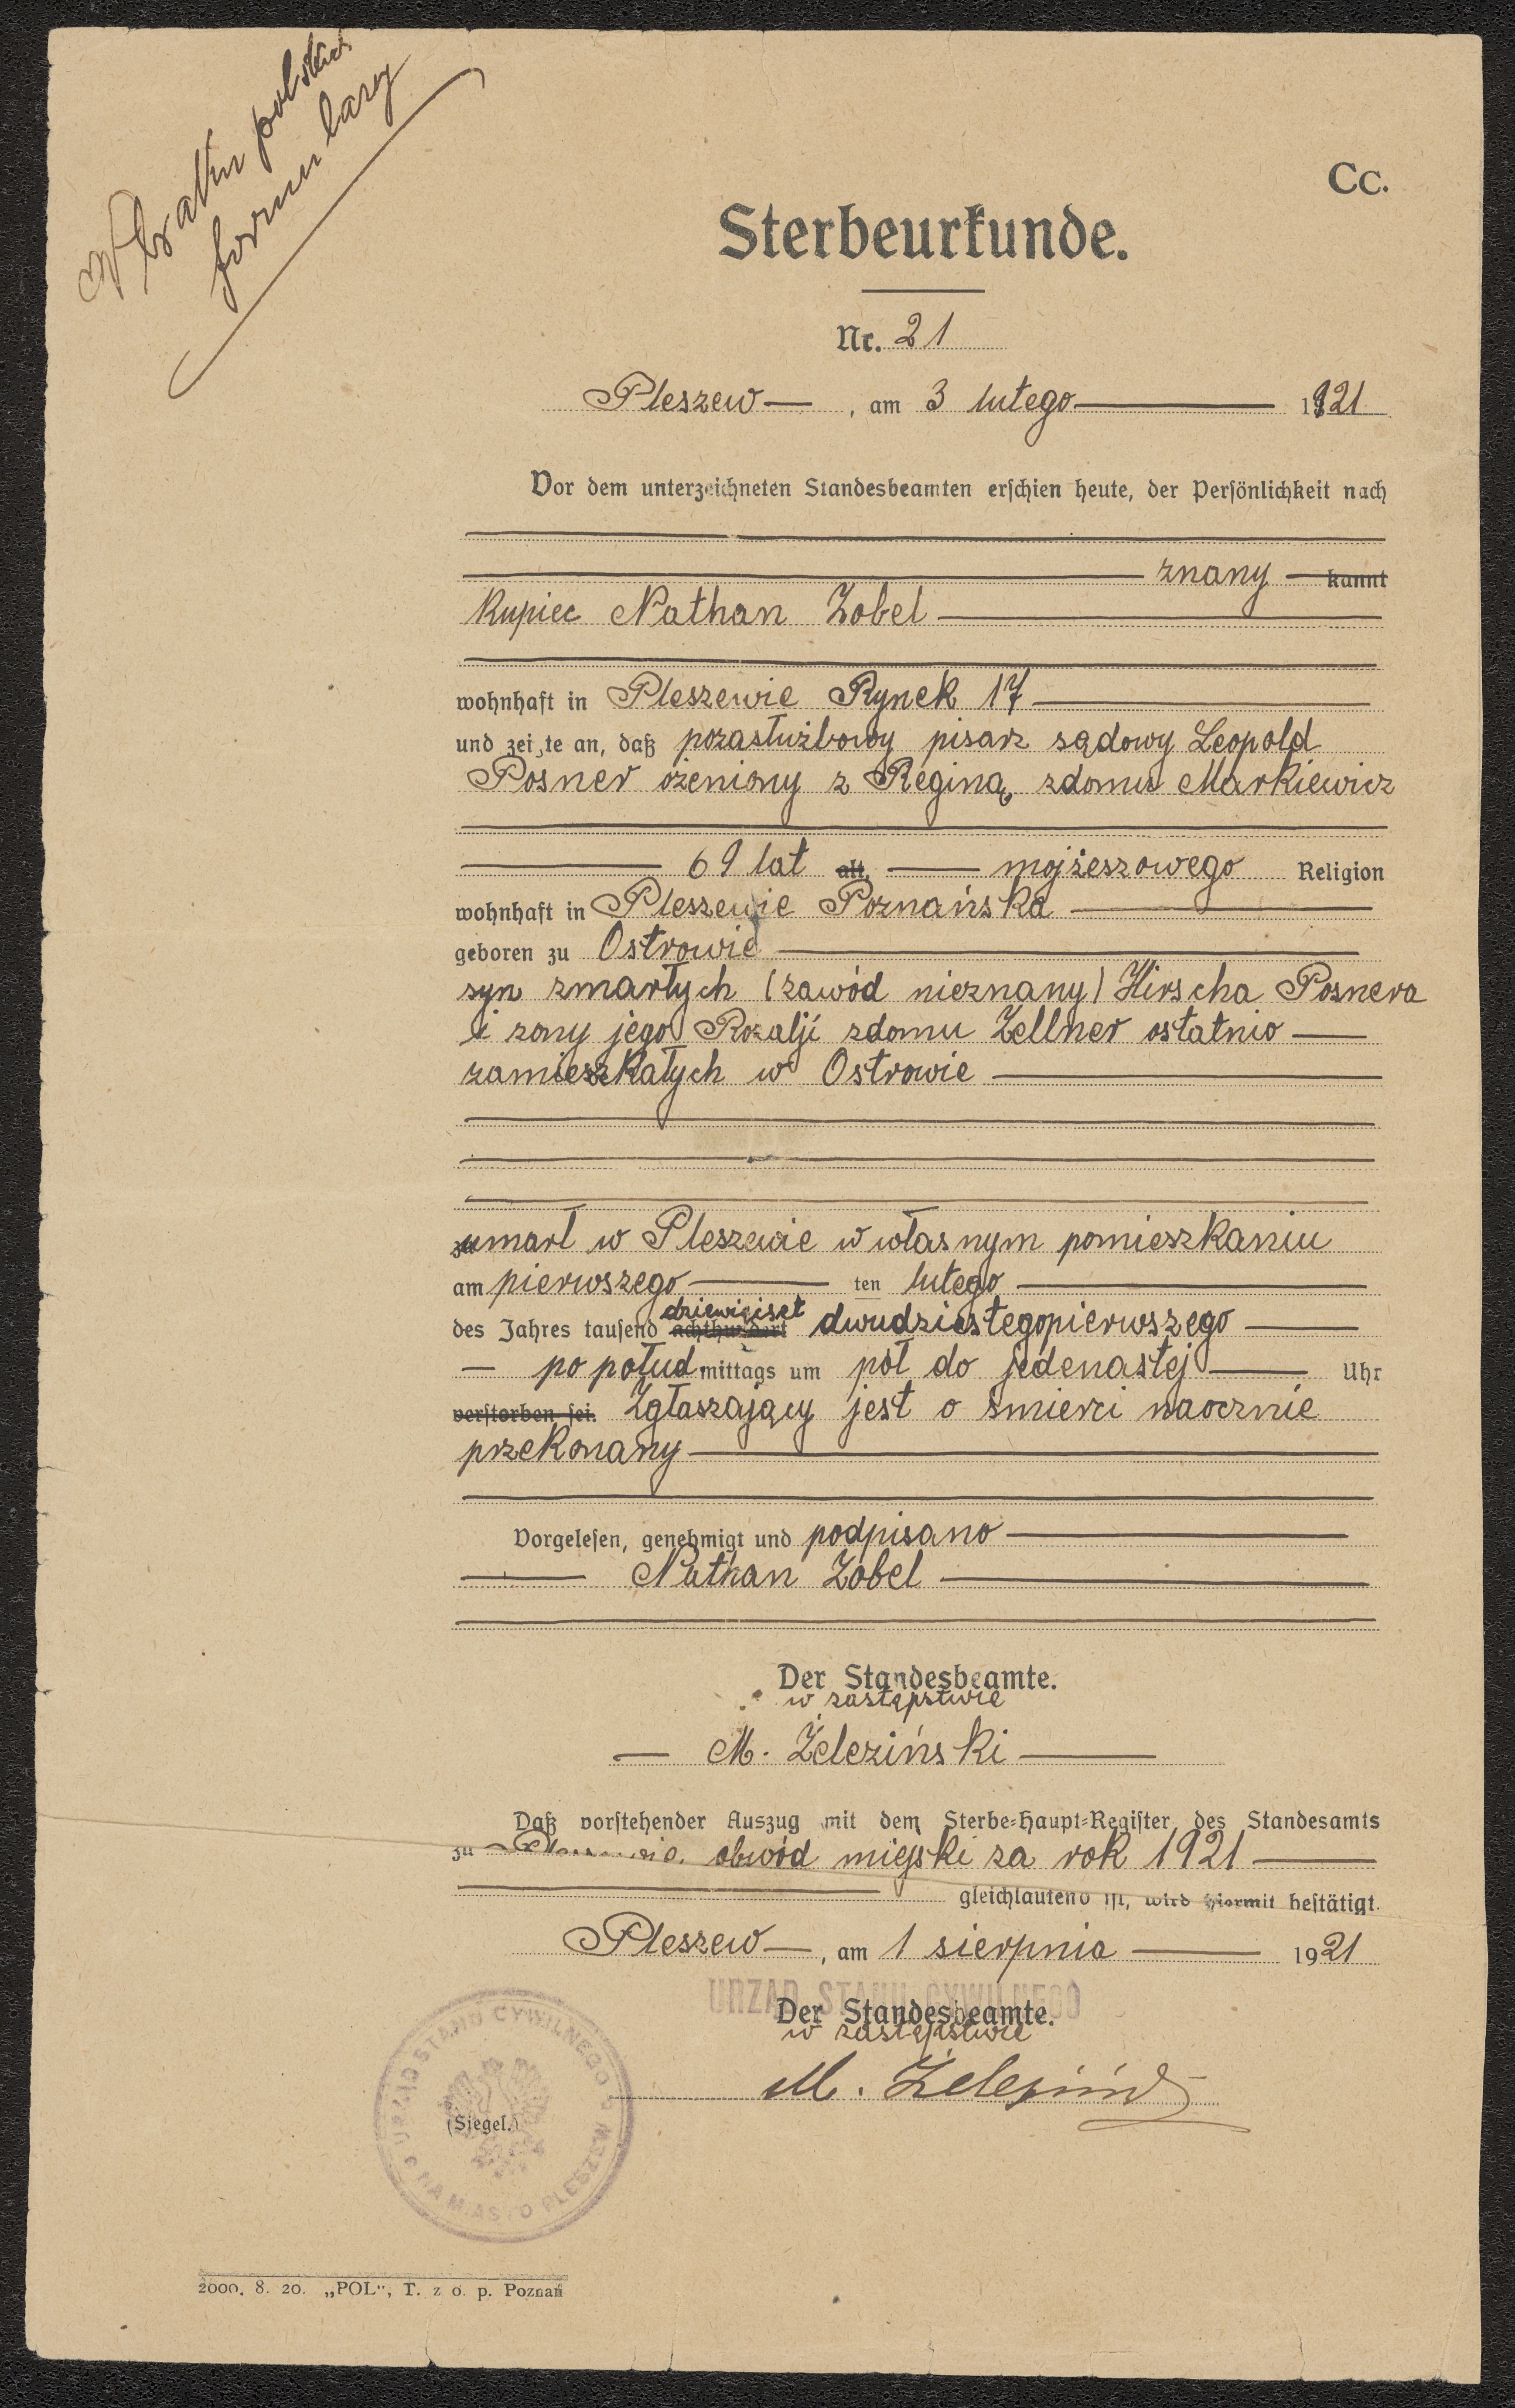 W braku polskich
formularzy
Cc.
Sterbeurkunde.
Nr. 21
Pleszew —, am 3 lutego — 1921
Vor dem unterzeichneten Standesbeamten erschien heute, der Persönlichkeit nach
— znany — kannt
Kupiec Nathan Zobel —
wohnhaft in Pleszewie Rynek 17 —
und zeigte an, daß pozasłużbowy pisarz sądowy Leopold
Posner ożeniony z Reginą zdomu Markiewicz
— 69 lat alt, — mojżeszowego Religion
wohnhaft in Pleszewie Poznańska —
geboren zu Ostrowie —
syn zmarłych (zawód nieznany) Hirscha Posnera
i zony jego Rozalji zdomu Zellner ostatnio —
zamieszkałych w Ostrowie —
umarł w Pleszewie w własnym pomieszkaniu
am pierwszego — ten lutego —
des Jahres tausend achthundert dziewięćset dwudziestegopierwszego —
— po połud mittags um pół do jedenastej — Uhr
verstorben sei. Zgłaszający jest o śmierci naocznie
przekonany —
Vorgelesen, genehmigt und podpisano —
— Nathan Zobel —
Der Standesbeamte.
w zastępstwie
— M. Żeleziński —
Daß vorstehender Auszug mit dem Sterbe-Haupt-Register des Standesamts
zu obwód miejski za rok 1921 —
gleichlautend ist, wird hiermit bestätigt.
Pleszew —, am 1 sierpnia — 1921
URZĄD STANU CYWILNEGO
Der Standesbeamte.
w zastępstwie
M. Żeleziński
URZĄD STANU CYWILNEGO
NA MIASTO PLESZEW
(Siegel.)
2000. 8. 20. „POL“, T. z o. p. Poznań